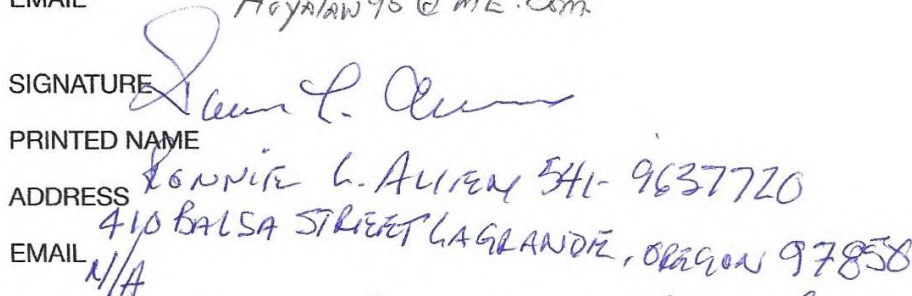 EMAIL
SIGNATURE
PRINTED NAME
RONNIE L. ALLEN 541-9637720
ADDRESS
410 BALSA STREET LAGRANDE, OREGON 97858
EMAIL N/A